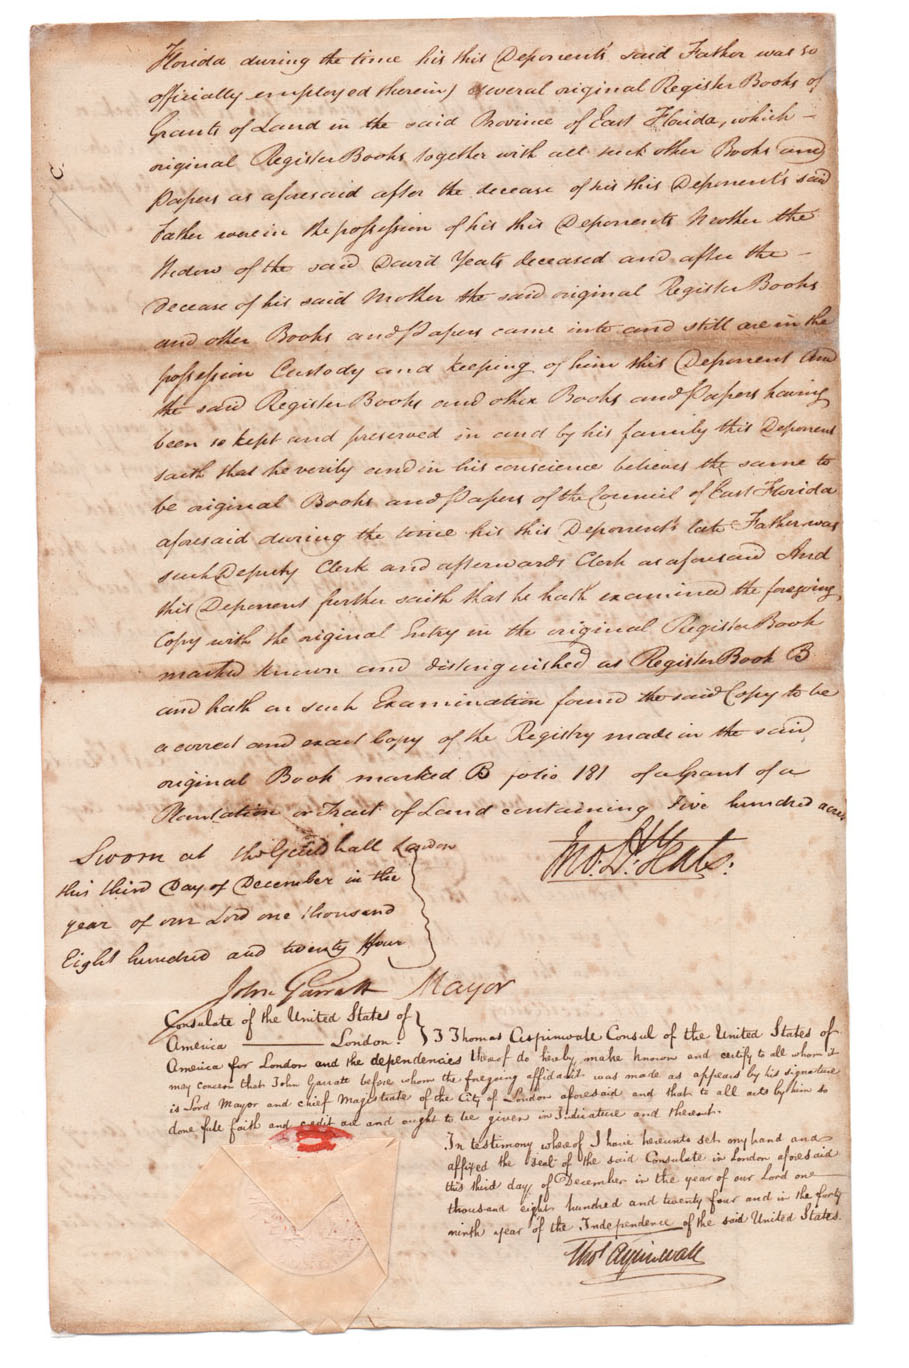 Florida during the time his this Deponent's said Father was so
officially employed therein) several original Register Books of
Grants of Land in the said Province of East Florida, which -
original Register Books together with all such other Books and
Papers as aforesaid after the decease of his this Deponent's said
Father were in the possession of his this Deponents Mother the
Widow of the said David Yeats deceased and after the -
Decease of his said Mother the said original Register Books
and other Books and Papers came into and still are in the
possession Custody and keeping of him this Deponent And
the said Register Books and other Books and Papers having
been so kept and preserved in and by his family this Deponent
saith that he verily and in his conscience believes the same to
be original Books and Papers of the Council of East Florida
aforesaid during the time his this Deponent's late Father was
such Deputy Clerk and afterwards Clerk as aforesaid And
this Deponent further saith that he hath examined the foregoing
Copy with the original Entry in the original Register Book
marked known and distinguished as Register Book B
and hath on such Examination found the said Copy to be
a correct and exact Copy of the Registry made in the said
original Book marked B folio 181 of a Grant of a
Plantation or Tract of Land containing Five hundred acres
Sworn at the Guildhall London
this third Day of December in the
year of our Lord one thousand
Eight hundred and twenty Four
Jno. Yeats.
John Garratt Mayor
Consulate of the United States of
America London. } I Thomas Aspinwall Consul of the United States of
America for London and the dependencies thereof do hereby make known and certify to all whom it
may concern that John Garratt before whom the foregoing affidavit was made as appears by his signature
is Lord Mayor and chief Magistrate of the City of London aforesaid and that to all acts by him so
done full faith and credit are and ought to be given in Judicature and thereout.
In testimony whereof I have hereunto set my hand and
affixed the seal of the said Consulate in London aforesaid
this third day of December in the year of our Lord one
thousand eight hundred and twenty four and in the forty
ninth year of the Independence of the said United States.
Thos Aspinwall
C